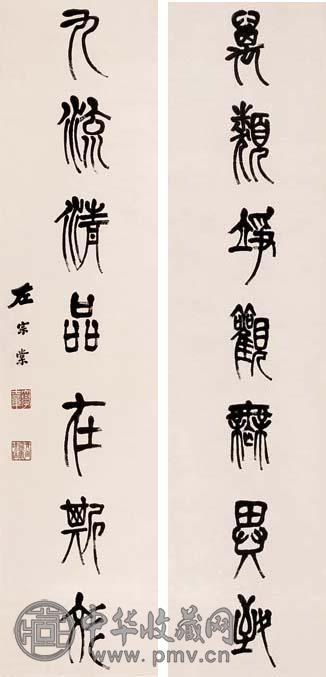 萬類竫觀無異
九流清品在斯文
左宗棠
中华收藏网
www.pmv.cn